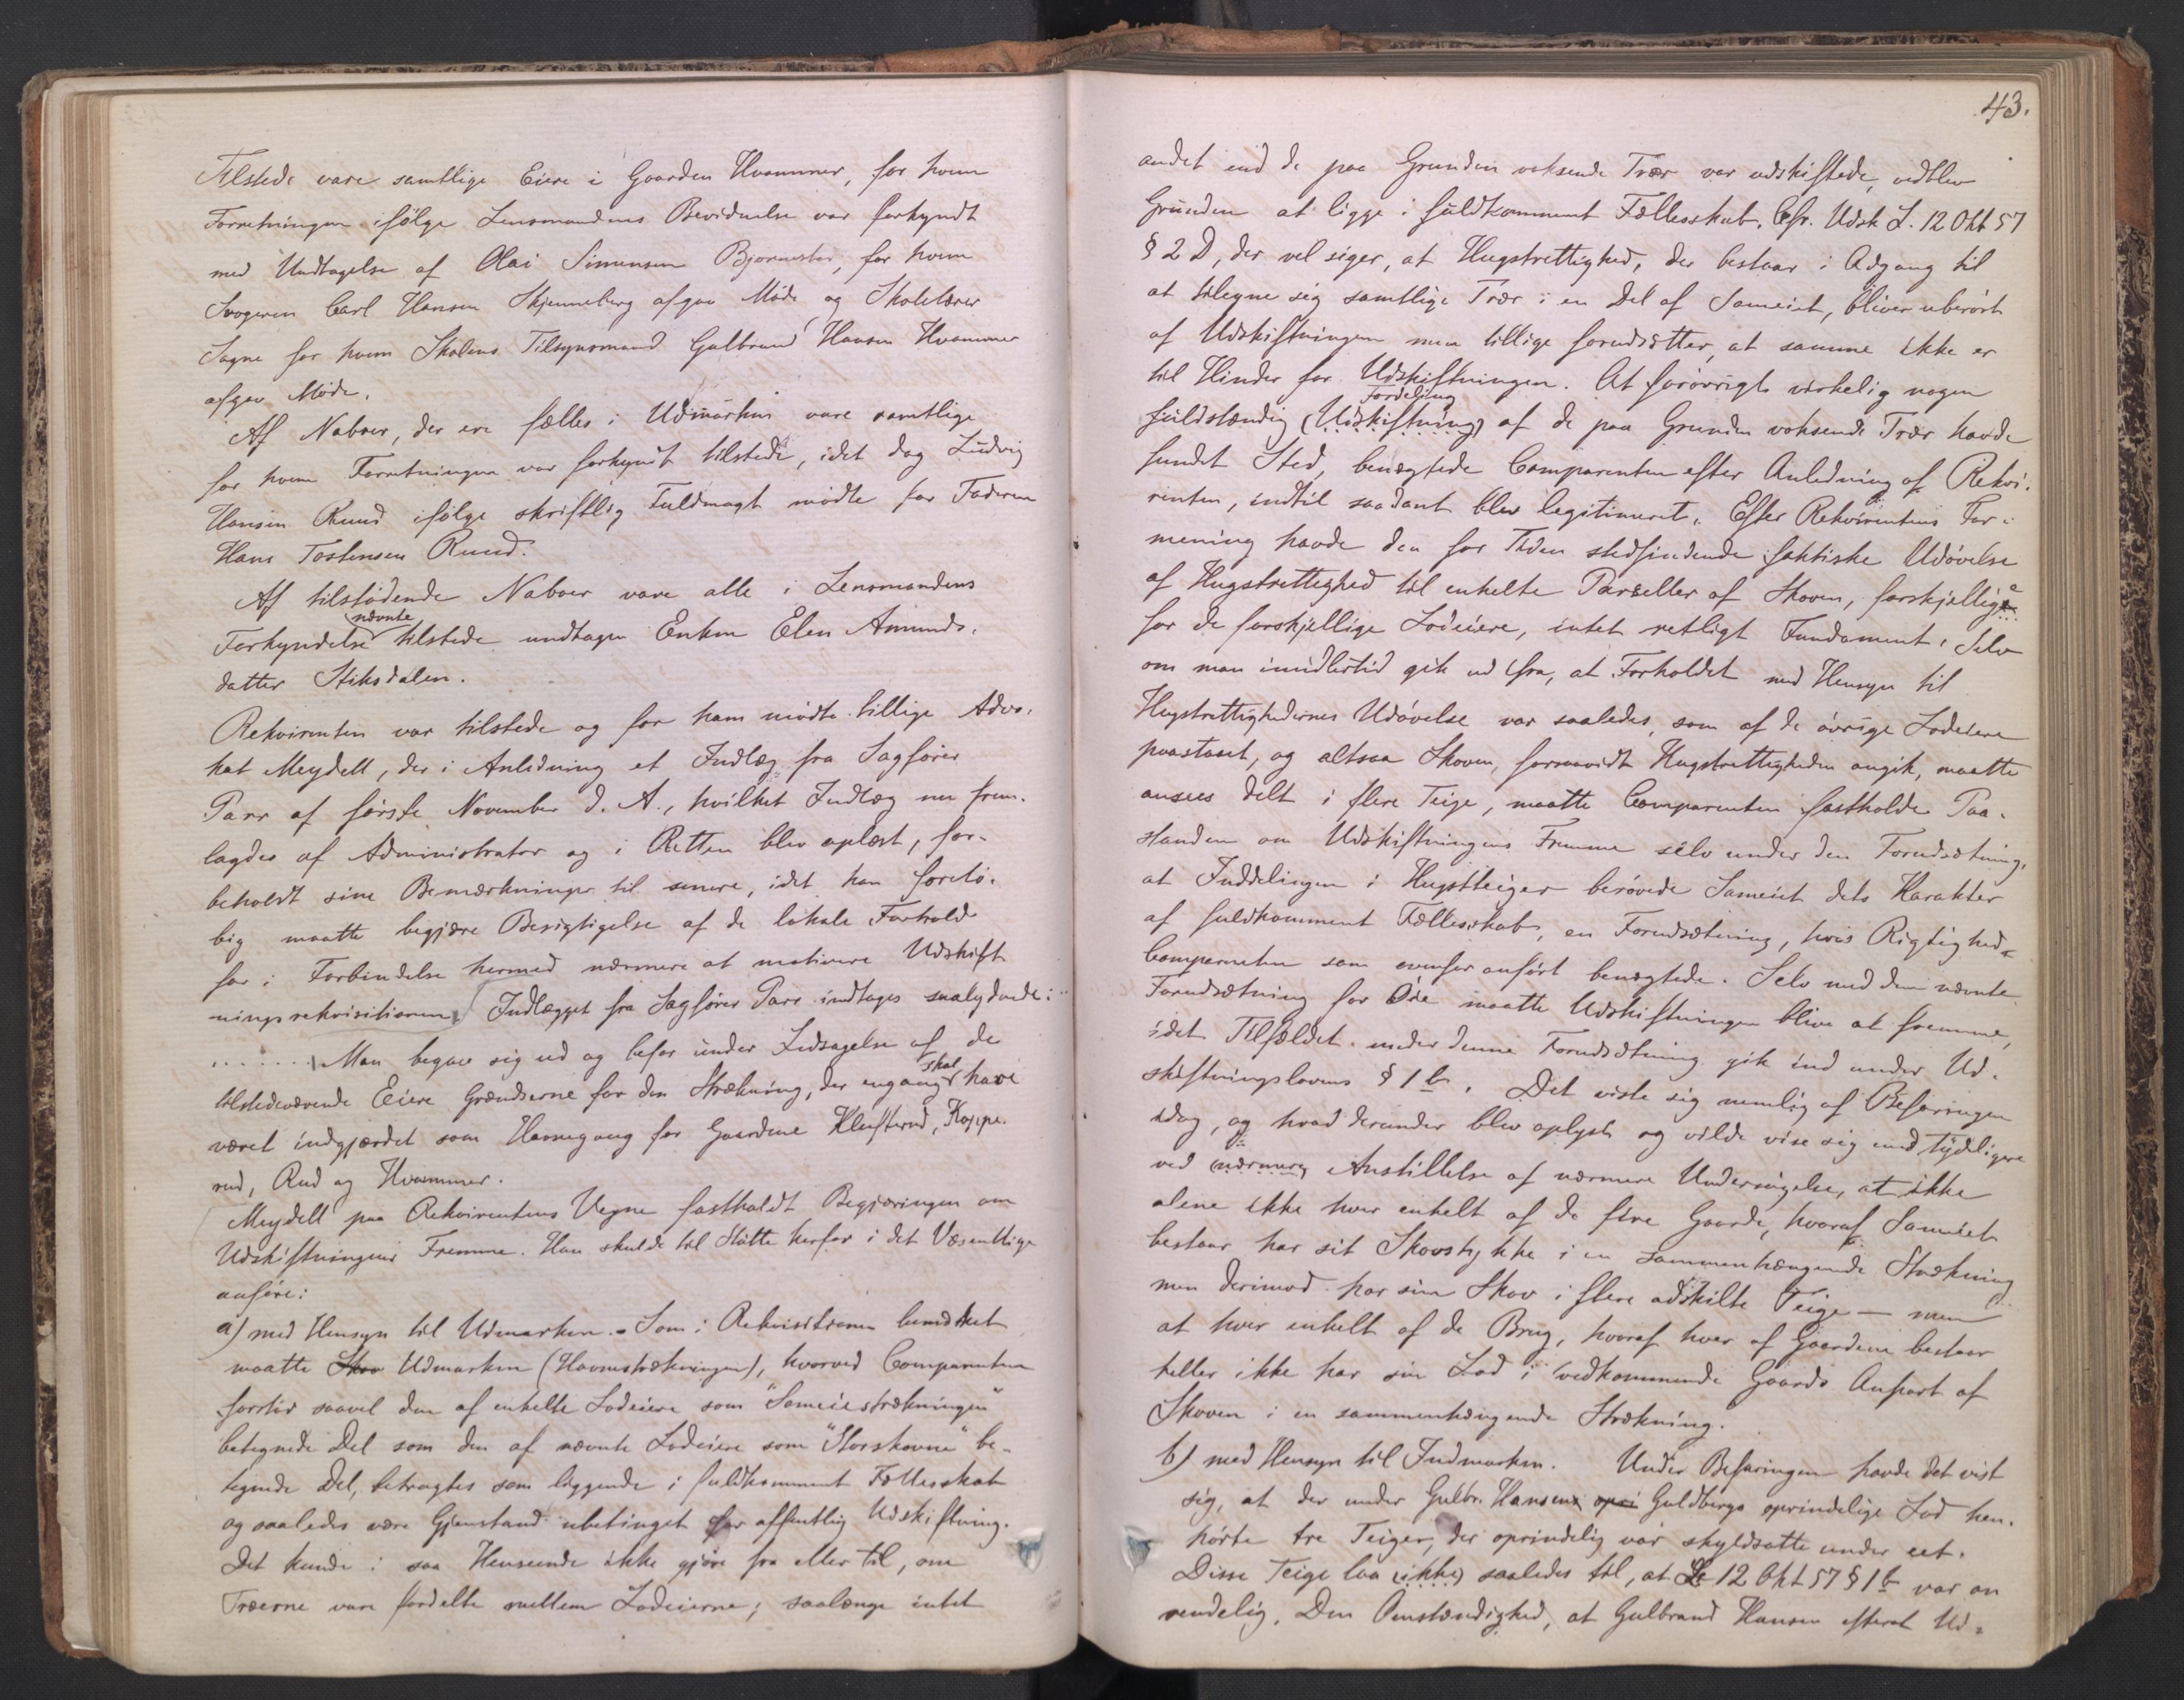 Tilstede vare samtlige Eiere i Gaarden Hvammer, for hvem
Forretningen ifølge Lensmandens Bevidnelse var forkyndt
med Undtagelse af Olai Simensen Bjørnestar, for hvem
Svogeren Carl Hansen Skjenneberg afgav Møde, og Skolelærer
Sagne for hvem Skolens Tilsynsmand Gulbrand Hansen Hvammer
afgav Møde.
Af Naboer, der ere fælles i Udmarken vare samtlige
for hvem Forretningen var forkyndt tilstede, idet dog Ludvig
Hansen Ruud ifølge skriftlig Fuldmagt mødte for Faderen
Hans Tostensen Ruud.
Af tilstødende Naboer vare alle i Lensmandens
Forkyndelse nævnte tilstede undtagen Enken Elen Amunds-
datter Stiksdalen.
Rekvirenten var tilstede og for ham mødte tillige Advo-
kat Meydell, der i Anledning et Indlæg fra Sagfører
Parr af første November d. A., hvilket Indlæg nu frem-
lagdes af Administrator og i Retten blev oplæst, for-
beholdt sine Bemærkninger til senere, idet han forelø-
big maatte begjære Besigtigelse af de lokale Forhold
for i Forbindelse hermed nærmere at motivere Udskift
ningsrekvisitionen. Indlægget fra Sagfører Parr indtages saalydende:
....... Man begav sig ud og befor under Ledsagelse af de
tilstedeværende Eiere Grændserne for den Strækning, der engang skal have
været indgjærdet som Havnegang for Gaardene Klufterud, Koppe-
rud, Rud og Hvammer.
Meydell paa Rekvirentens Vegne fastholdt Begjæringen om
Udskiftningens Fremme. Han skulde til Støtte herfor i det Væsentlige
anføre:
a) med Hensyn til Udmarken. Som i Rekvisitionen bemærket
maatte Skov Udmarken (Havnestrækningen), hvorved Comparenten
forstod saavel den af enkelte Lodeiere som "Sameiestrækningen"
betegnede Del som den af nævnte Lodeiere som "Storskovne" be-
tegnede Del, betragtes som liggende i fuldkomment Fællesskab
og saaledes være Gjenstand ubetinget for offentlig Udskiftning.
Det kunde i saa Henseende ikke gjøre fra eller til, om
Træerne vare fordelte mellem Lodeierne; saalænge intet
43.
andet end de paa Grunden voksende Trær var udskiftede, vedblev
Grunden at ligge i fuldkomment Fællesskab. Cfr. Udsk L. 12 Okt 57
§ 2 D, der vel siger, at Hugstrettighed, der bestaar i Adgang til
at tilegne sig samtlige Trær i en Del af Sameiet, bliver uberørt
af Udskiftningen men tillige forudsætter, at samme ikke er
til Hinder for Udskiftningen. At forøvrigt virkelig nogen
fuldstændig (Udskiftning) Fordeling af de paa Grunden voksende Trær havde
fundet Sted, benægtede Comparenten efter Anledning af Rekvi-
renten, indtil saadant blev legitimeret. Efter Rekvirentens For-
mening havde den for Tiden stedfindende faktiske Udøvelse
af Hugstrettighed til enkelte Parseller af Skoven, forskjellige
for de forskjellige Lodeiere, intet retligt Fundament. Selv
om man imidlertid gik ud fra, at Forholdet med Hensyn til
Hugstrettighedernes Udøvelse var saaledes, som af de øvrige Lodeiere
paastaaet, og altsaa Skoven, forsaavidt Hugstrettigheden angik, maatte
ansees delt i flere Teige, maatte Comparenten fastholde Paa-
standen om Udskiftningens Fremme selv under den Forudsætning,
at Inddelingen i Hugstteiger berøvede Sameiet dets Karakter
af fuldkomment Fællesskab, en Forudsætning, hvis Rigtighed
Comparenten som ovenfor anført benægtede. Selv med den nævnte
Forudsætning for Øie maatte Udskiftningen blive at fremme,
idet Tilfældet under denne Forudsætning gik ind under Ud-
skiftningslovens § 1 b. Det viste sig nemlig af Befaringen
idag, og hvad derunder blev oplyst og vilde vise sig end tydeligere
ved (nærmere) Anstillelse af nærmere Undersøgelse, at ikke
alene ikke hver enkelt af de fire Gaarde, hvoraf Sameiet
bestaar har sit Skovstykke i en sammenhængende Strækning
men derimod har sin Skov i flere adskilte Teige — men
at hver enkelt af de Brug, hvoraf hver af Gaardene bestaar
heller ikke har sin Lod i vedkommende Gaards Anpart af
Skoven i en sammenhængende Strækning.
b) med Hensyn til Indmarken. Under Befaringen havde det vist
sig, at der under Gulbr. Hansens opri Guldbergs oprindelige Lod hen-
hørte tre Teiger, der oprindelig var skyldsatte under eet.
Disse Teige laa (ikke) saaledes til, at L 12 Okt 57 § 1 b var an
vendelig. Den Omstændighed, at Gulbrand Hansen efterat Ud-